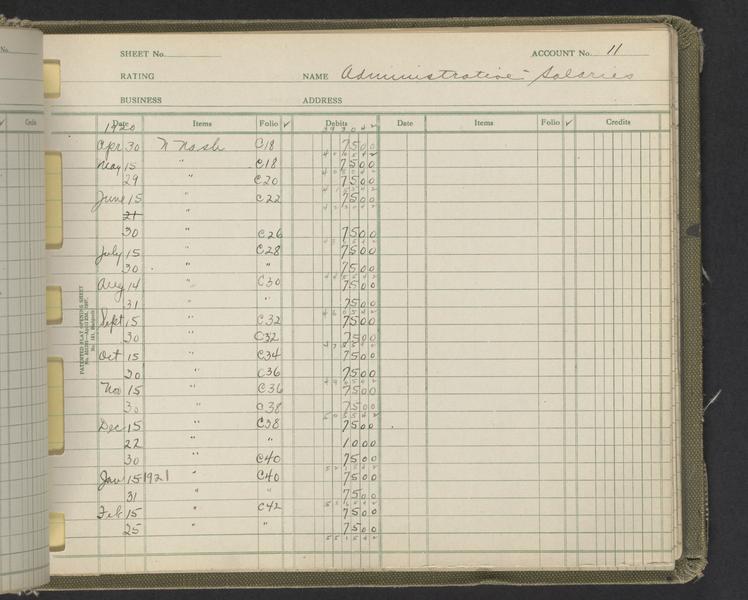 No.
SHEET No.
ACCOUNT No. 11
RATING
NAME Administrative Salaries
BUSINESS
ADDRESS
Credits
Date Items Folio ✓ Debits Date Items Folio ✓ Credits
1920
Apr 30 N Nash C18 75 00
May 15 " C18 75 00
29 " C20 75 00
June 15 " C22 75 00
21 "
30 C26 75 00
July 15 " C28 75 00
30 " " 75 00
Aug 14 " C30 75 00
31 " " 75 00
Sept 15 " C32 75 00
30 " C32 75 00
Oct 15 " C34 75 00
30 " C36 75 00
Nov 15 " C36 75 00
30 " C38 75 00
Dec 15 " C38 75 00
22 " " 10 00
30 " C40 75 00
Jan 15 1921 " C40 75 00
31 " " 75 00
Feb 15 " C42 75 00
25 " " 75 00
PATENTED FLAT OPENING SHEET